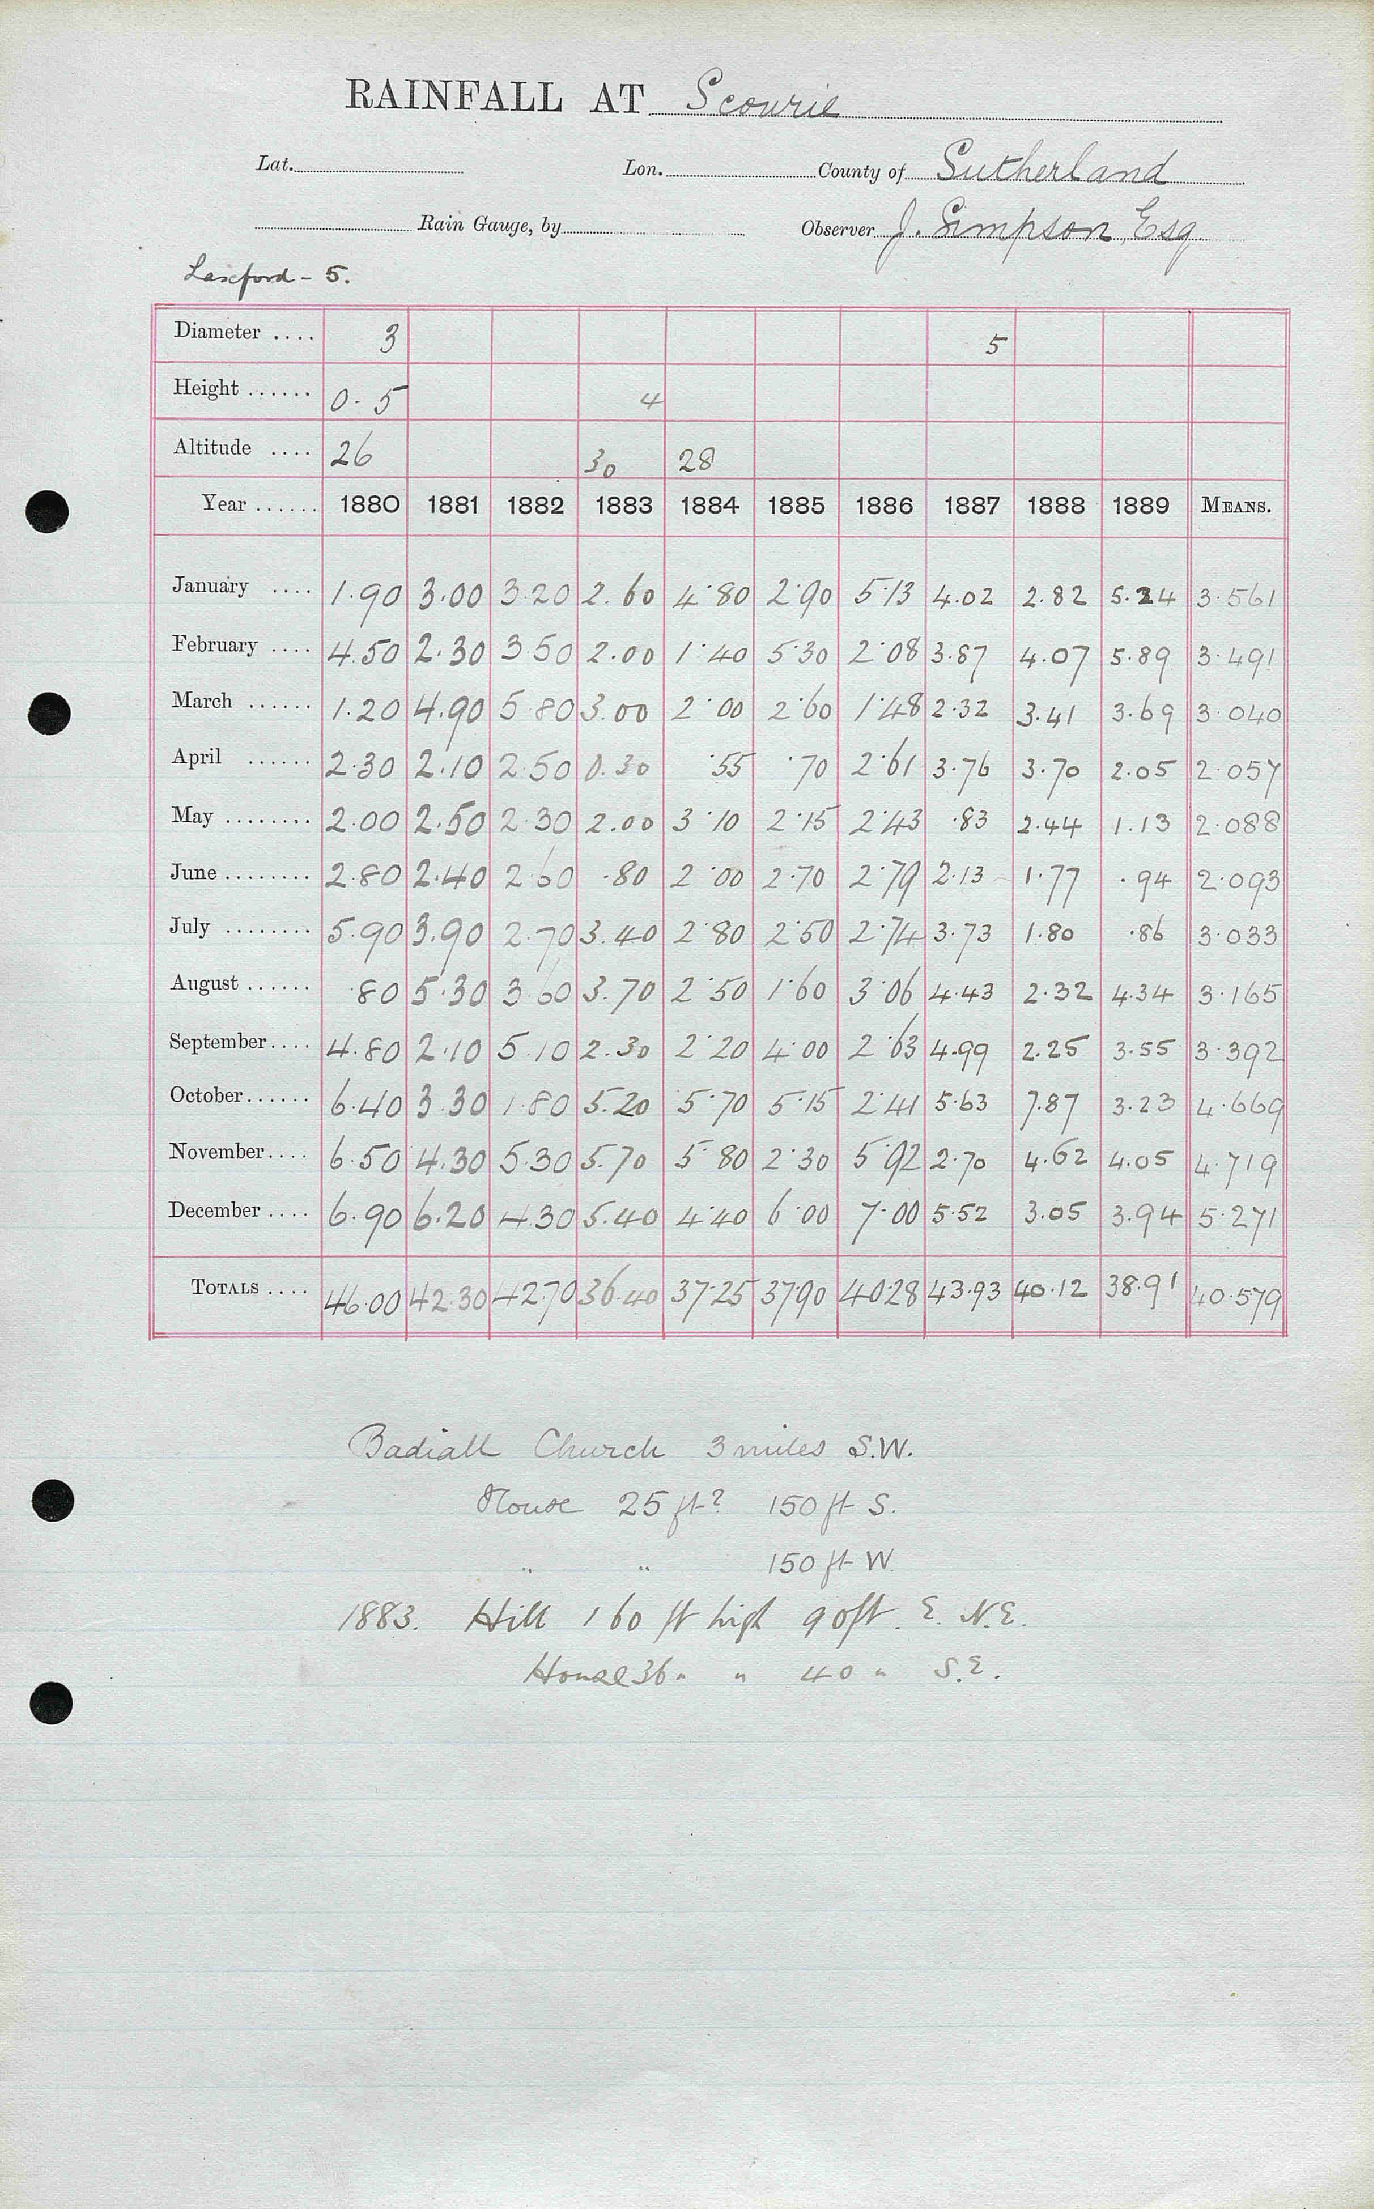 RAINFALL AT Scourie
Lat. Lon. County of Sutherland
Rain Gauge, by Observer J. Simpson Esq
Laxford - 5.
Diameter .... 3 5
Height ...... 0. 5 4
Altitude .... 26 30 28
Year ...... 1880 1881 1882 1883 1884 1885 1886 1887 1888 1889 MEANS.
January .... 1.90 3.00 3.20 2.60 4.80 2.90 5.13 4.02 2.82 5.24 3.561
February .... 4.50 2.30 3.50 2.00 1.40 5.30 2.08 3.87 4.07 5.89 3.491
March ...... 1.20 4.90 5.80 3.00 2.00 2.60 1.48 2.32 3.41 3.69 3.040
April ...... 2.30 2.10 2.50 0.30 .55 .70 2.61 3.76 3.70 2.05 2.057
May ........ 2.00 2.50 2.30 2.00 3.10 2.15 2.43 .83 2.44 1.13 2.088
June ........ 2.80 2.40 2.60 .80 2.00 2.70 2.79 2.13 1.77 .94 2.093
July ........ 5.90 3.90 2.70 3.40 2.80 2.50 2.74 3.73 1.80 .86 3.033
August ...... .80 5.30 3.60 3.70 2.50 1.60 3.06 4.43 2.32 4.34 3.165
September .... 4.80 2.10 5.10 2.30 2.20 4.00 2.63 4.99 2.25 3.55 3.392
October ...... 6.40 3.30 1.80 5.20 5.70 5.15 2.41 5.63 7.87 3.23 4.669
November .... 6.50 4.30 5.30 5.70 5.80 2.30 5.92 2.70 4.62 4.05 4.719
December .... 6.90 6.20 4.30 5.40 4.40 6.00 7.00 5.52 3.05 3.94 5.271
TOTALS .... 46.00 42.30 42.70 36.40 37.25 37.90 40.28 43.93 40.12 38.91 40.579
Badiall Church 3 miles S.W.
House 25 ft? 150 ft S.
" " 150 ft W
1883. Hill 160 ft high 90 ft. E. N.E.
House 36 " " 40 " S.E.